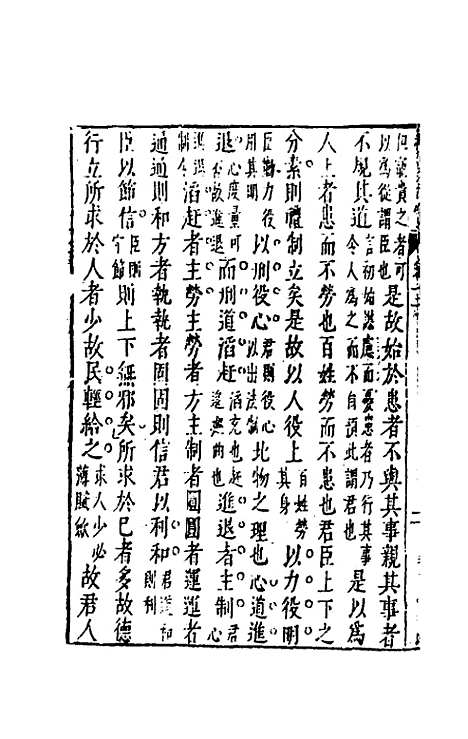 貴之者可以為從謂臣 是故始於患者不與其事親其事者
不規其道 言初始謀慮而憂患者乃行其事令人為之而不自預此謂君也 是以為
人上者患而不勞也百姓勞而不患也君臣上下之
分素則禮制立矣是故以人役上 百姓勞其身 以力役明
臣勤力役用其明 以刑役心 君則役心以出法制 此物之理也心道進
退 心度量可否故進退 而刑道滔赶 滔充也赶無曲也 進退者主制 君心
進退制令 滔赶者主勞主勞者方主制者圓圓者運運者
通通則和方者執執者固固則信君以利和 君道和則利
臣以節信 臣守節 則上下無邪矣所求於己者多故德
行立所求於人者少故民輕給之 求人少必薄賦斂 故君人